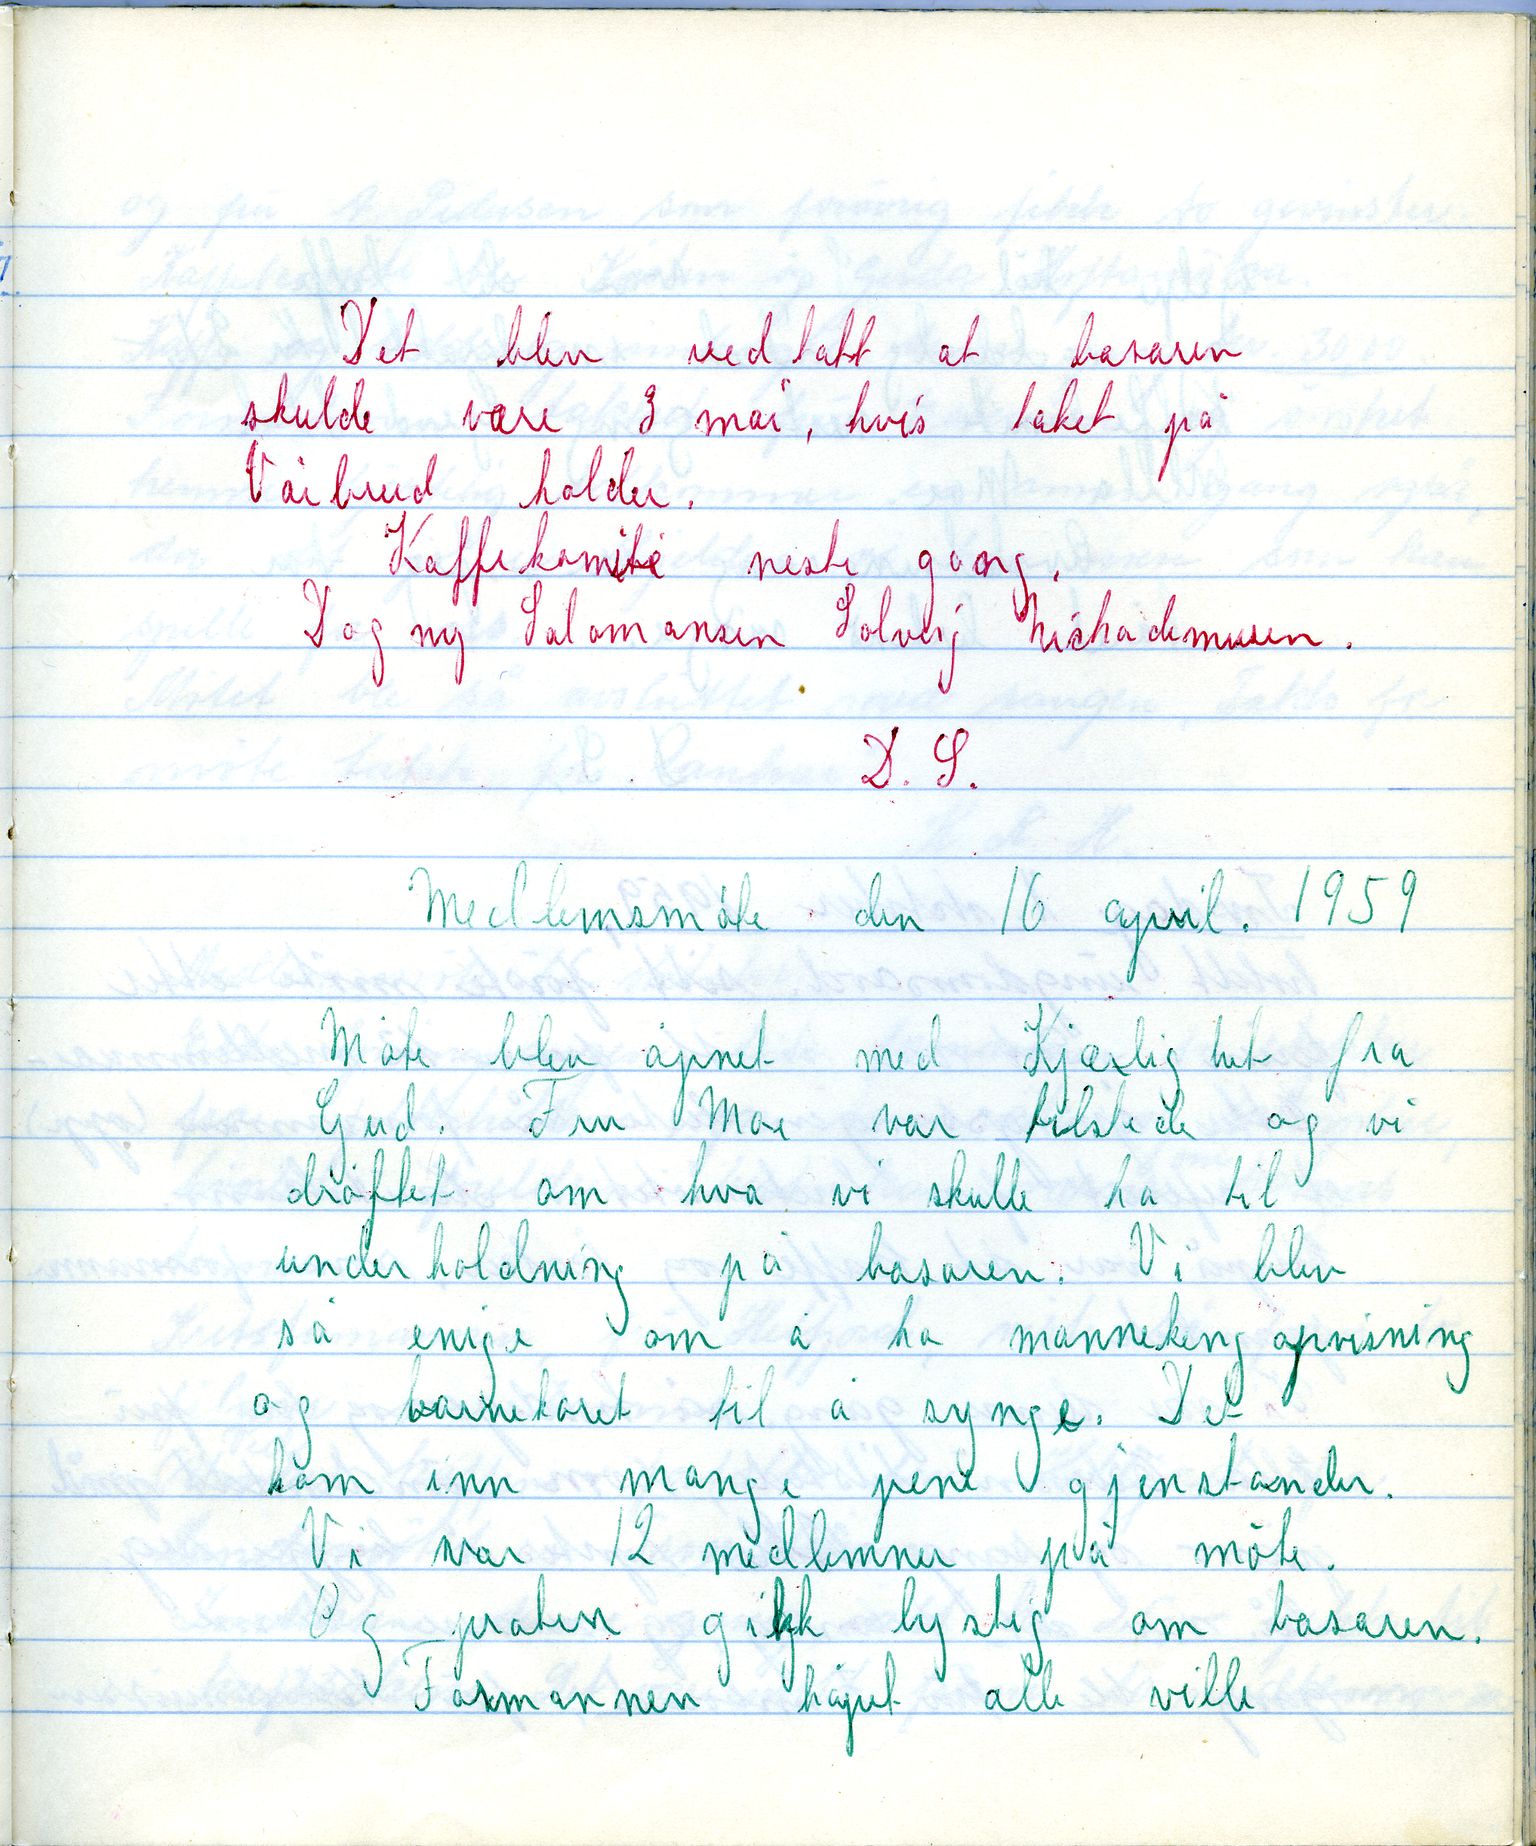 Det blev vedtatt at basaren
skulde være 3 mai, hvis taket på
Vårbrud holder.
Kaffekomité neste gang.
Dagny Salomansen Solveig
D. S.
Medlemsmöte den 16 april. 1959
Möte blev åpnet med Kjærlighet fra
Gud. Fru Moe var tilstede og vi
dröftet om hva vi skulle ha til
underholdning på basaren. Vi blev
så enige om å ha mannekengopvisning
og barnekoret til å synge. Det
kom inn mange pene gjenstander.
Vi var 12 medlemmer på möte.
Og praten gikk lystig om basaren.
Formannen håpet alle ville